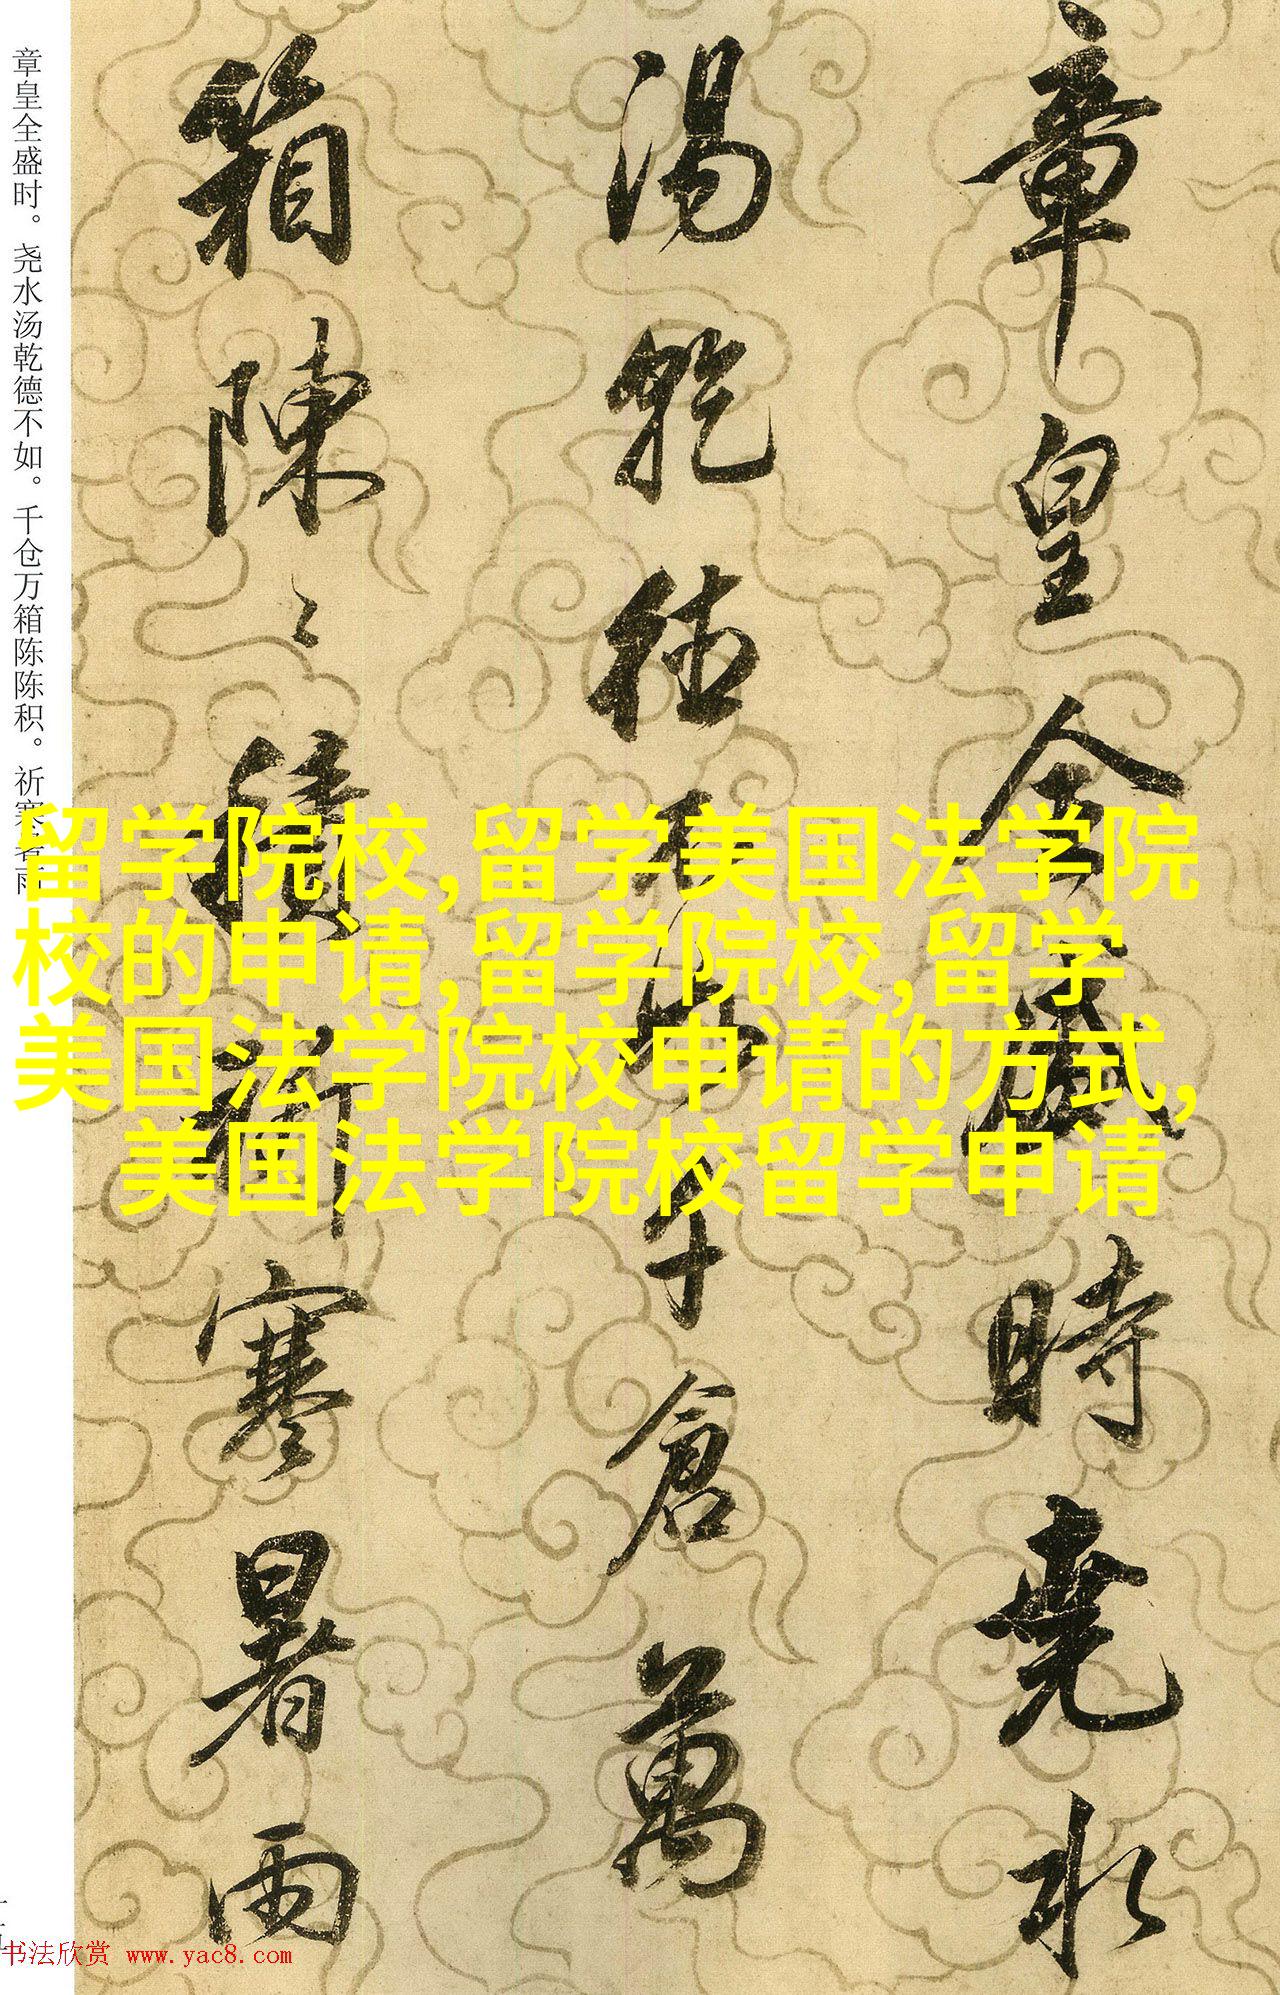 章皇全盛時堯水
湯乾德不如千倉萬
箱陳〻積祈寒暑雨
章皇全盛时。尧水汤乾德不如。千仓万箱陈陈积。祈寒暑雨
留学院校,留学美国法学院
校的申请,留学院校,留学
美国法学院校申请的方式,
美国法学院校留学申请
书法欣赏 www.yac8.com